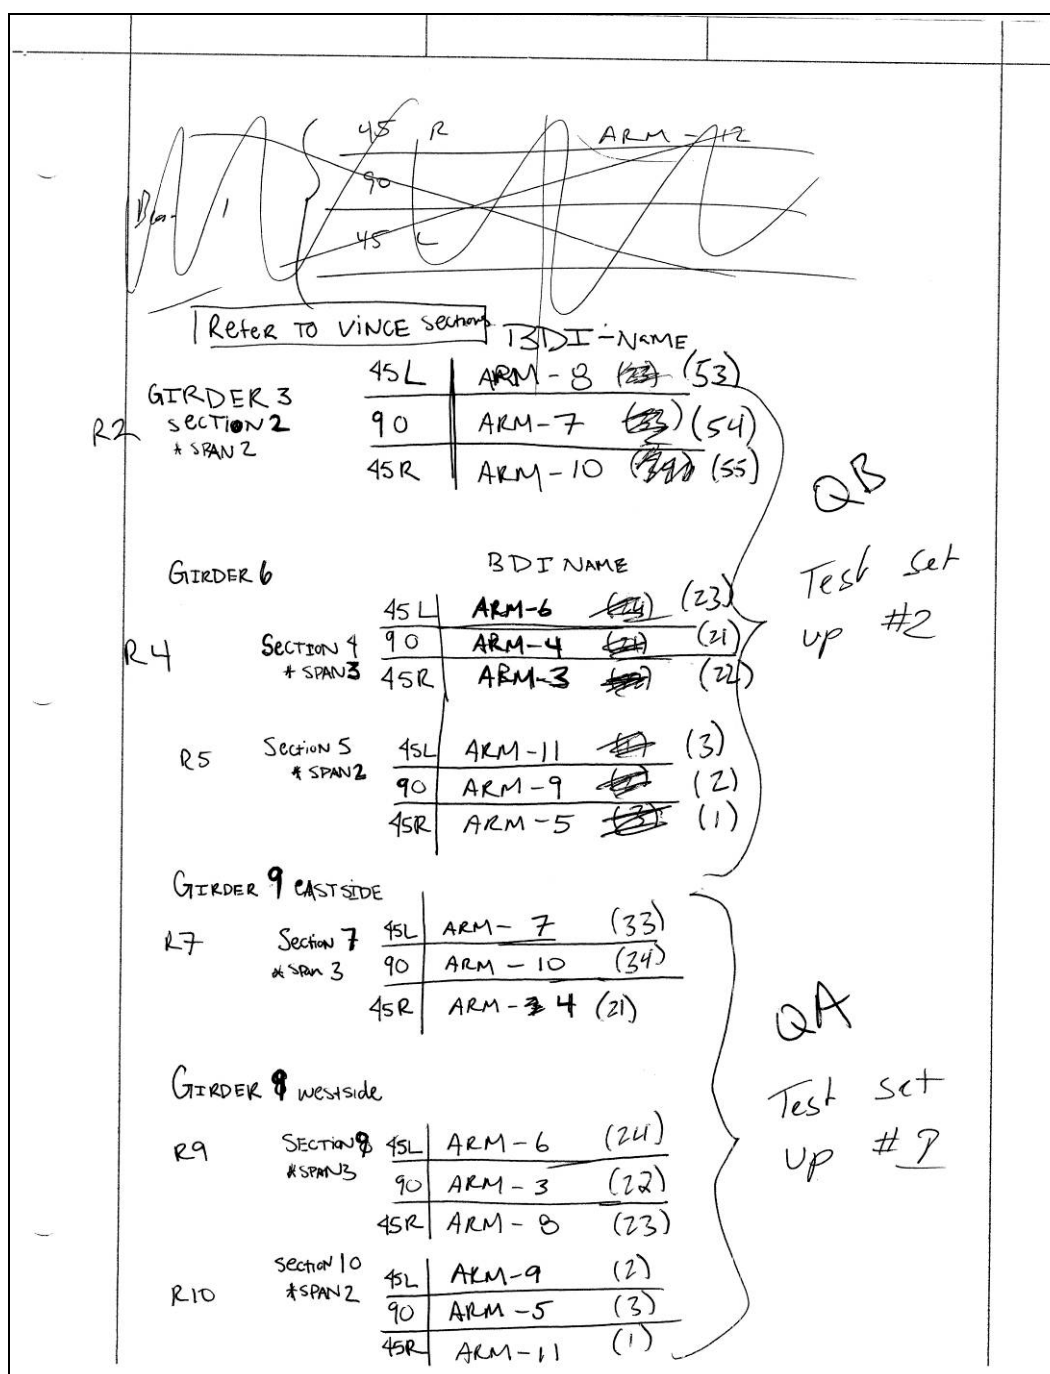 45 R ARM-12
90
45 L
Refer TO VINCE Sections
BDI-NAME
GIRDER 3
R2 SECTION 2
* SPAN 2
45L ARM-8 (53)
90 ARM-7 (54)
45R ARM-10 (55)
QB
Test set
up #2
GIRDER 6
BDI NAME
R4 SECTION 4
* SPAN 3
45L ARM-6 (23)
90 ARM-4 (21)
45R ARM-3 (22)
R5 Section 5
* SPAN 2
45L ARM-11 (3)
90 ARM-9 (2)
45R ARM-5 (1)
GIRDER 9 EASTSIDE
R7 Section 7
* Span 3
45L ARM-7 (33)
90 ARM-10 (34)
45R ARM-4 (21)
QA
Test set
up #
GIRDER 9 westside
R9 SECTION 9
* SPAN 3
45L ARM-6 (24)
90 ARM-3 (22)
45R ARM-8 (23)
R10 Section 10
* SPAN 2
45L ARM-9 (2)
90 ARM-5 (3)
45R ARM-11 (1)